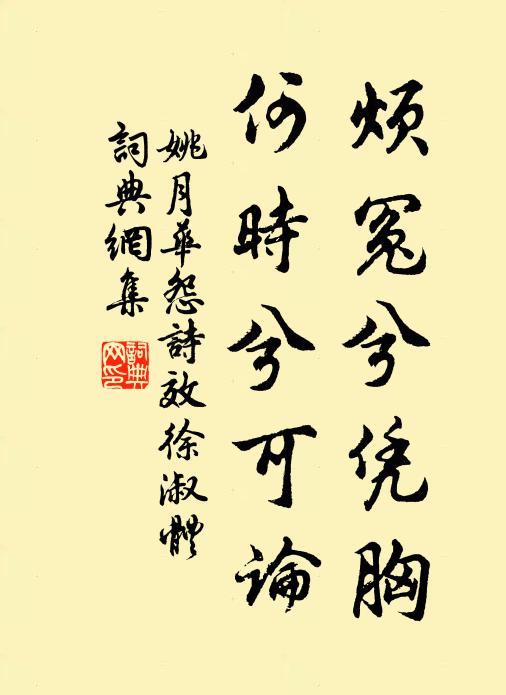 烦冤兮凭胸
何時兮可論
姚月華怨詩效徐淑體
詞典網集
詞典網印